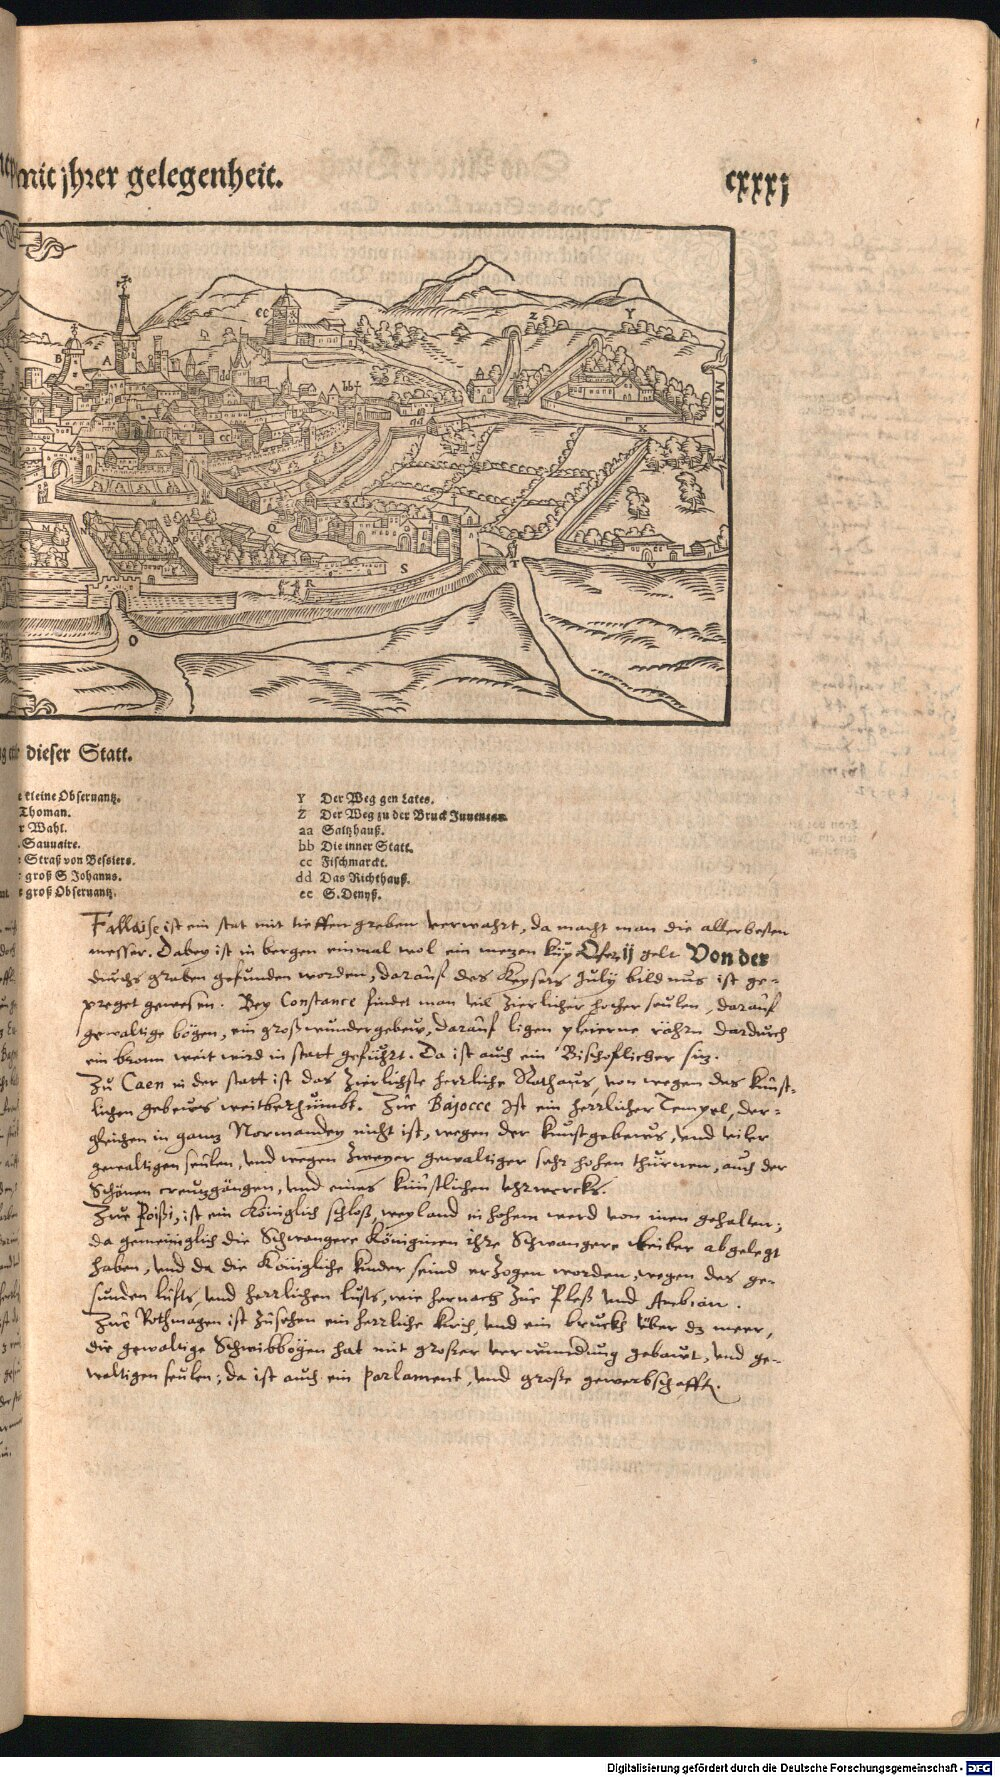 mit jhrer gelegenheit.
cxxxj
MIDY
dieser Statt.
kleine Obseruantz.
Thoman.
Wahl.
Sauuaire.
Straß von Bessiers.
groß S Johanns.
groß Obseruantz.
Y Der Weg gen Lates.
Z Der Weg zu der Bruck Iuuenean
aa Saltzhauß.
bb Die inner Statt.
cc Fischmarckt.
dd Das Richthauß.
ee S. Denyß.
Fallaise ist ein stat mit tieffen graben verwahrt, da macht man die allerbesten
messer. Dabey ist in bergen einmal wol ein metzen gelt Von der
durchs graben gefunden worden, darauf des Keysers July bildnus ist ge-
preget gewesen. Bey Constance findet man viel zierlicher hocher seulen, darauf
gewaltige bögen, ein groß wundergebew, darauf ligen pleierne röhrn dardurch
ein bronn weit wird in statt geführt. Da ist auch ein Bischoflicher siz.
Zu Caen in der statt ist das zierlichste herrliche Rathaus, von wegen des künst-
lichen gebews weitberhümbt. Zue Bajocce Ist ein herrlicher Tempel, der-
gleichen in gantz Normandey nicht ist, wegen der kunstgebews, vnd vieler
gewaltigen seulen, vnd wegen zweyer gewaltiger sehr hohen thurnen, auch der
Schönen creutzgängen, vnd eines künstlichen vhrwercks.
Zue Poißi, ist ein Königlich schloß, weyland in hohem werd von inen gehalten;
da gemeiniglich die Schwangere Königinen ihre Schwangere leiber abgelegt
haben, vnd da die Königliche kinder seind erzogen worden, wegen des ge-
sunden lüfts, vnd herrlichen lusts, wie hernach zue Pleß vnd Ambian.
Zue Rothmagen ist zusehen ein herrliche Kirch, vnd ein bruckh über dz meer,
die gewaltige Schwibbögen hat mit großer verwundrung gebawt, vnd ge-
waltigen seulen; da ist auch ein parlament, vnd große gewerbschafft.
Digitalisierung gefördert durch die Deutsche Forschungsgemeinschaft - DFG